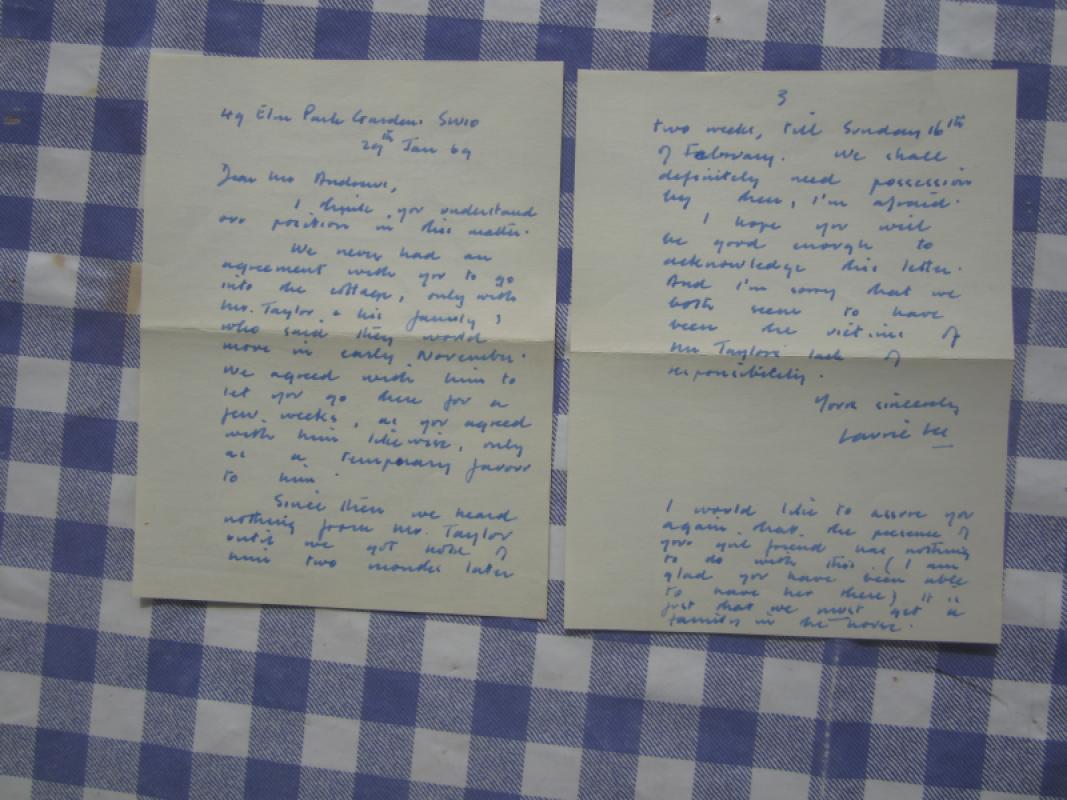 49 Elm Park Gardens SW10
29th Jan 69
Dear Mr Andrews,
I think you understand
our position in this matter.
We never had an
agreement with you to go
into the cottage, only with
Mr. Taylor & his family,
who said they would
move in early November.
We agreed with him to
let you go there for a
few weeks, as you agreed
with him likewise, only
as a temporary favour
to him.
Since then we heard
nothing from Mr. Taylor
until we got hold of
him two months later
3
two weeks, till Sunday 16th
of February. We shall
definitely need possession
by then, I'm afraid.
I hope you will
be good enough to
acknowledge this letter.
And I'm sorry that we
both seem to have
been the victims of
Mr Taylor's lack of
responsibility.
Yours sincerely
Laurie Lee
I would like to assure you
again that the presence of
your girl friend has nothing
to do with this (I am
glad you have been able
to have her there) it is
just that we must get a
family in the house.